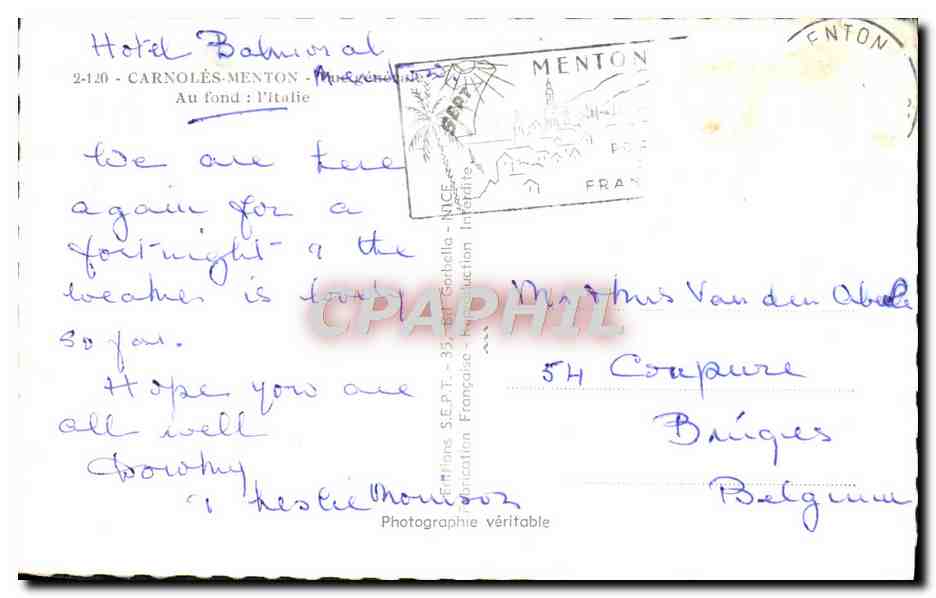 Hotel Balmoral
2-120 - CARNOLÈS-MENTON -
Menton
Au fond : l'Italie
We are here
again for a
fortnight & the
weather is lovely
so far.
Hope you are
all well
Dorothy
& Leslie Morrison
MENTON
SEPT
FRAN
ENTON
Editions S.E.P.T. - 35, Bd Gorbella - NICE
Fabrication Française - Reproduction Interdite
CPAPHIL
Mr & Mrs Van den Abeele
54 Coupure
Bruges
Belgium
Photographie véritable